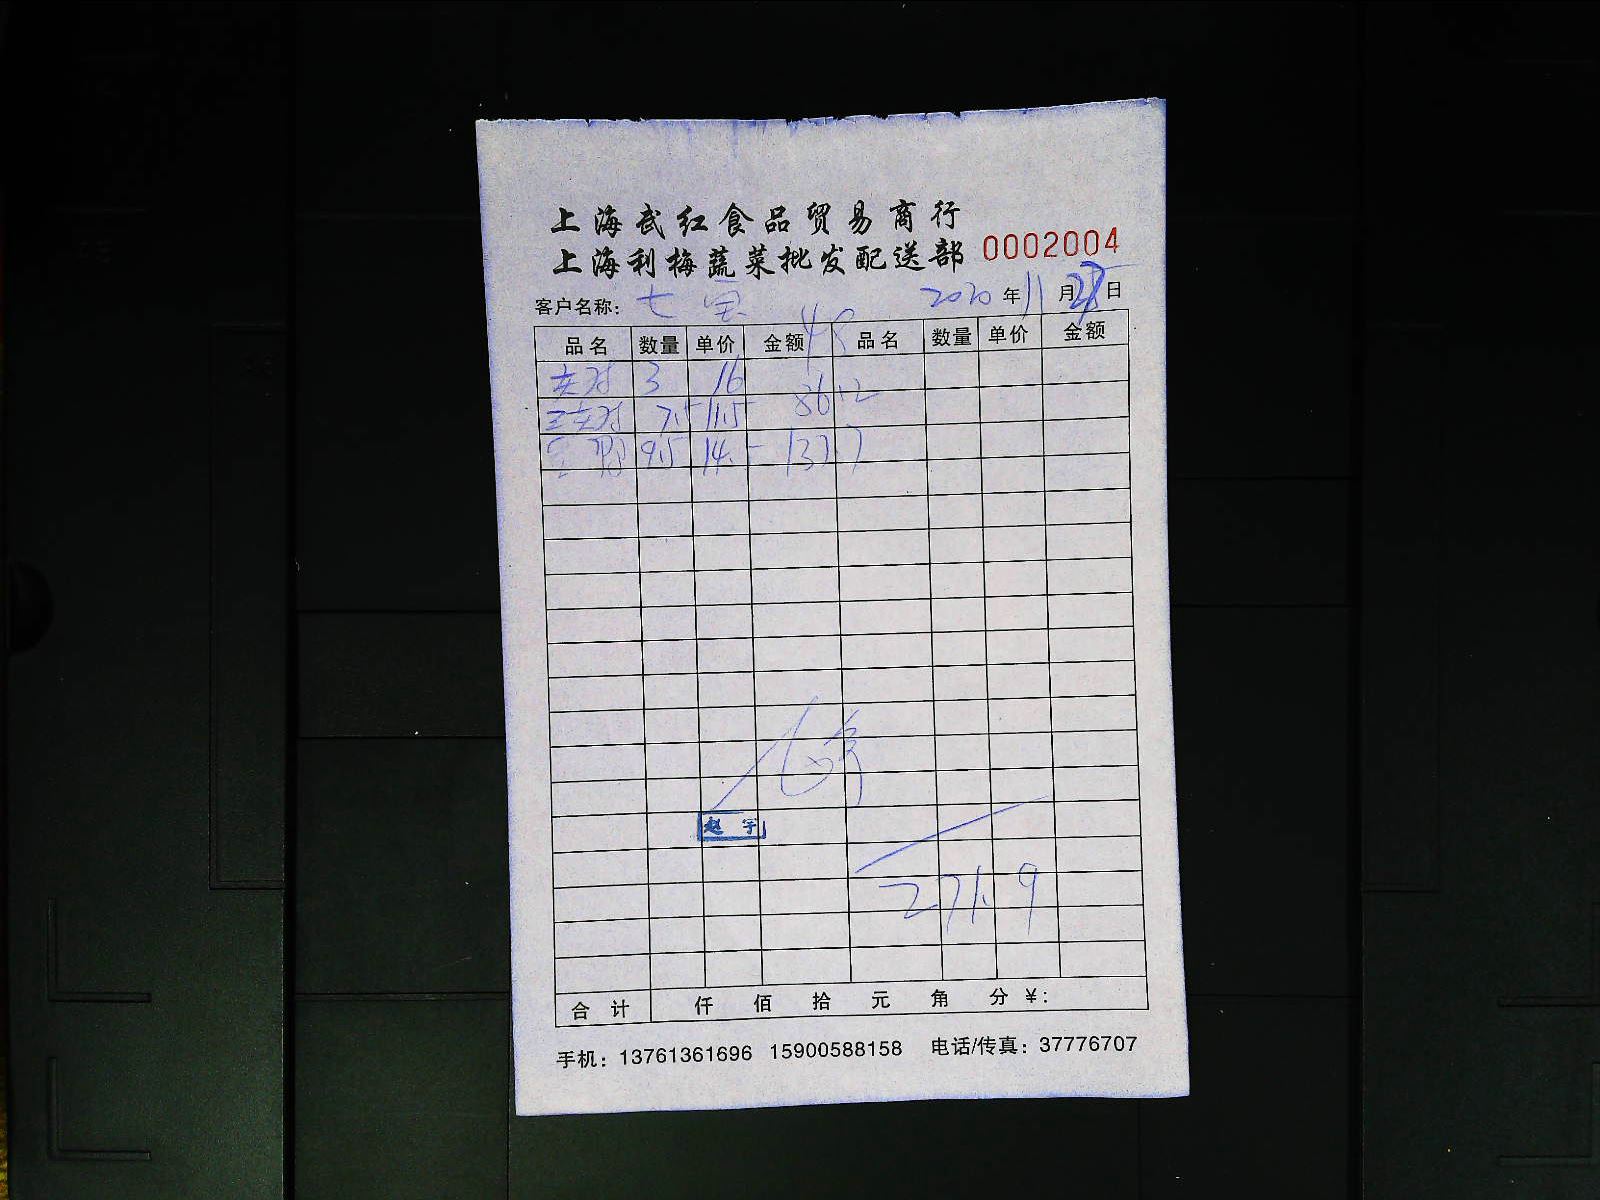 上海武红食品贸易商行
上海利梅蔬菜批发配送部 0002004
客户名称: 七宝 2020年11月日
品名 数量 单价 金额 品名 数量 单价 金额
3 16 48
7.5 11.5 86.2
9.5 14.5 137.7
赵宇
271.9
合计 仟 佰 拾 元 角 分 ¥:
手机: 13761361696 15900588158 电话/传真: 37776707